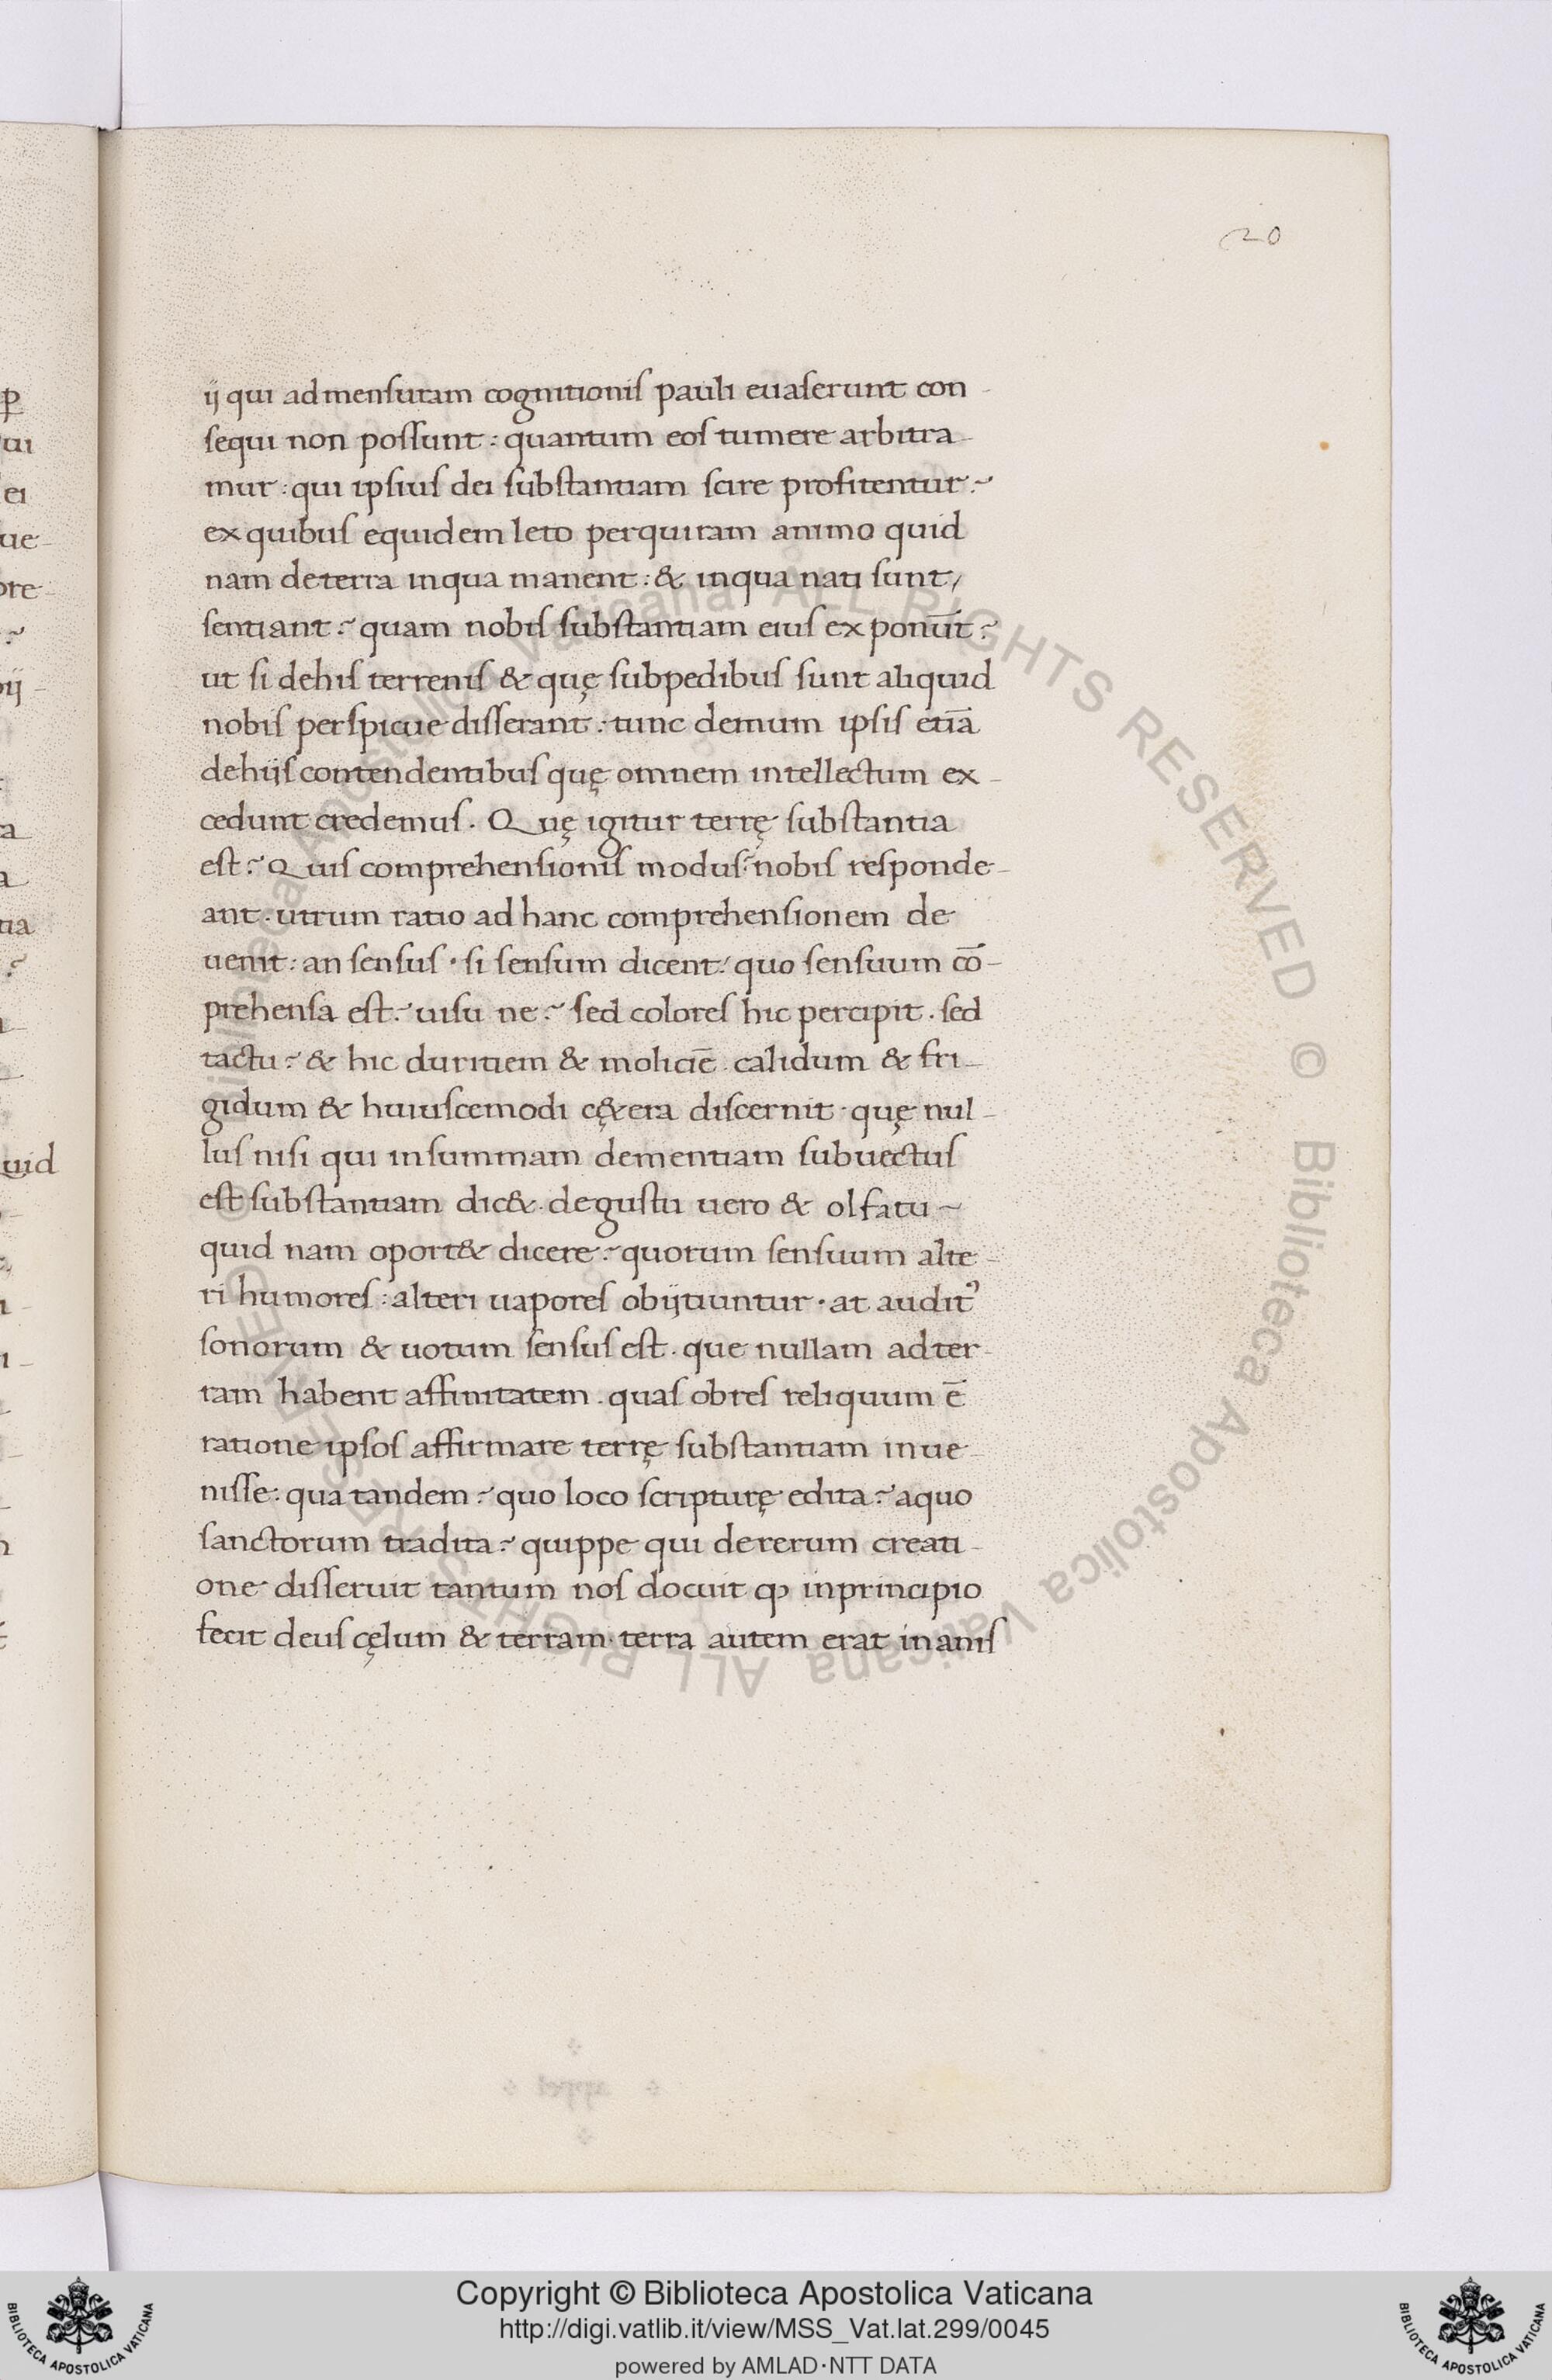 20
ij qui admensuram cognitionis pauli euaserunt con-
sequi non possunt: quantum eos tumere arbitra-
mur: qui ipsius dei substantiam scire profitentur?
ex quibus equidem leto perquiram animo quid
nam deterra inqua manent: & inqua nati sunt/
sentiant? quam nobis substantiam eius exponūt?
ut si dehis terrenis & quę subpedibus sunt aliquid
nobis perspicue disserant: tunc demum ipsis etiā
dehijs contendentibus quę omnem intellectum ex-
cedunt credemus. Quę igitur terrę substantia
est? Quis comprehensionis modus? nobis responde-
ant. utrum ratio ad hanc comprehensionem de
uenit: an sensus. si sensum dicent: quo sensuum cō-
prehensa est? uisu ne? sed colores hic percipit. sed
tactu? & hic duritiem & moliciē. calidum & fri-
gidum & huiuscemodi cę&era discernit. quę nul-
lus nisi qui insummam dementiam subuectus
est substantiam dic&. degustu uero & olfatu
quid nam oport& dicere? quorum sensuum alte-
ri humores: alteri uapores obijtiuntur. at auditꝰ
sonorum & uocum sensus est. que nullam adter-
ram habent affinitatem. quas obres reliquum ē
ratione ipsos affirmare terrę substantiam inue-
nisse: qua tandem? quo loco scripturę edita? aquo
sanctorum tradita? quippe qui dererum creati-
one disseruit tantum nos docuit ꝙ inprincipio
fecit deus cęlum & terram. terra autem erat inanis
© Biblioteca Apostolica Vaticana ALL RIGHTS RESERVED © Biblioteca Apostolica Vaticana ALL RIGHTS RESERVED
Copyright © Biblioteca Apostolica Vaticana
http://digi.vatlib.it/view/MSS_Vat.lat.299/0045
powered by AMLAD·NTT DATA
BIBLIOTECA APOSTOLICA VATICANA
BIBLIOTECA APOSTOLICA VATICANA